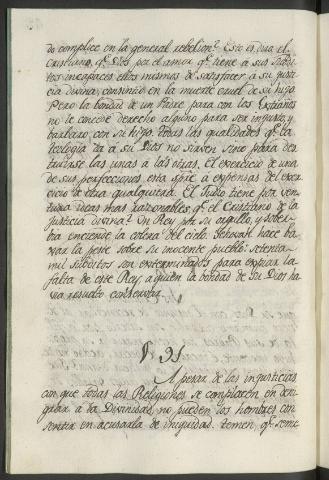 do complice en la general rebelion? Esto es dira el
Cristiano, q.e Dios por el amor q.e tiene à sus subdi
tos incapaces ellos mismos de satisfacer à su justi
cia divina, consintiò en la muerte cruel de su hijo
Pero la bondad de un Padre para con los Extraños
no le concede derecho alguno para ser injusto, y
barbaro con su hijo. todas las qualidades q.e la
teologia da à su Dios no sirven sino para des
truirse las unas à las otras. El exercicio de una
de sus perfecciones està sp̃re à expensas del exer
cicio de otra qualquiera. El Judio tiene por ven
tura ideas mas razonables q.e el Cristiano de la
Justicia divina? Un Rey por su orgullo, y sober
bia enciende la colera del cielo. Jehovah hace ba
xar la peste sobre su inocente pueblo: setenta
mil subditos son exterminados para expiar la
falta de este Rey, à quien la bondad de su Dios ha
via resuelto conservar.
§. 91
A pesar de las injusticias
con que todas las Religiones se complacen en deni
grar à la Divinidad, no pueden los hombres con
sentir en acusarla de iniquidad. temen, q.e seme